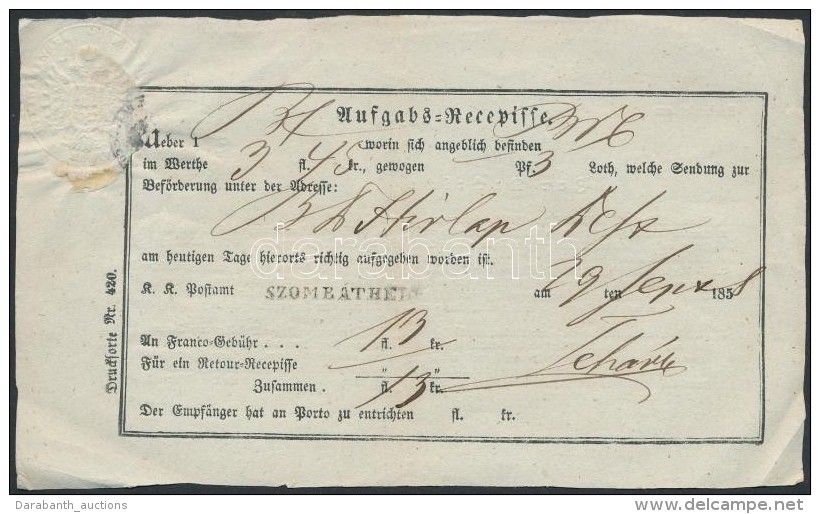 Aufgabs-Recepisse.
Ueber 1 worin sich angeblich befinden
im Werthe 3 fl. 45 kr., gewogen Pf. 3 Loth, welche Sendung zur
Beförderung unter der Adresse:
Hirlap Pest
am heutigen Tage hierorts richtig aufgegeben worden ist.
K. K. Postamt SZOMBATHELY am 29 ten Sept 1858
An Franco-Gebühr . . . fl. 13 kr.
Für ein Retour-Recepisse " "
Zusammen . fl. 13 kr.
Der Empfänger hat an Porto zu entrichten fl. kr.
Drucksorte Nr. 420.
darabanth
Darabanth_auctions
delcampe.net